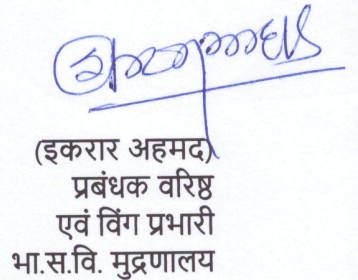 (इकरार अहमद)
प्रबंधक वरिष्ठ
एवं विंग प्रभारी
भा.स.वि. मुद्रणालय